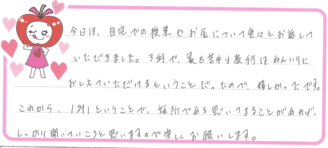 今日は、自宅での授業やお足について色々とお話して
いただきました。3教科で、最も苦手な数学はねんいりに
おしえていただけるということだったので、嬉しかったです。
これから、1対1ということで、短所である思いつまることがあれば、
しっかり聞いていこうと思いますので宜しくお願いします。